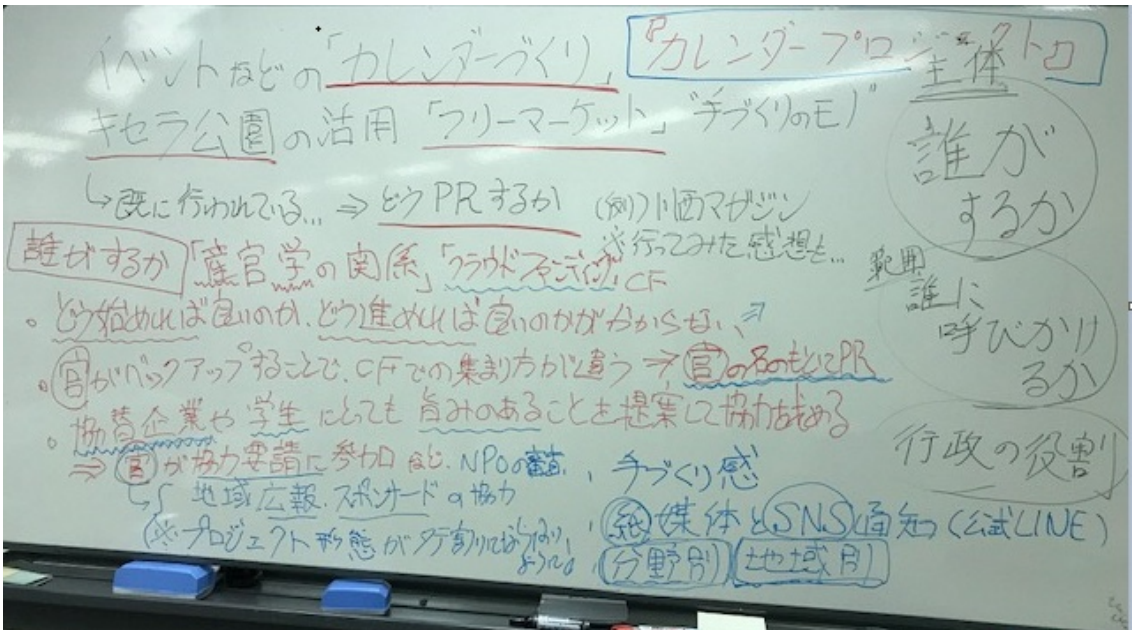 イベントなどの「カレンダーづくり」
『カレンダープロジェクト』
キセラ公園の活用 「フリーマーケット」 "手づくりのモノ"
↳既に行われている… ⇒ どうPRするか (例)川西マガジン
※行ってみた感想も…
誰がするか 「産官学の関係」「クラウドファンディング」CF
。どう始めれば良いのか、どう進めれば良いのかが分からない、⇒
。官がバックアップすることで、CFでの集まり方が違う ⇒ 官の名のもとにPR
。協賛企業や学生にとっても旨みのあることを提案して協力求める
⇒ 官が協力要請に参加など、NPOの
↳ 地域広報、スポンサードの協力
(※プロジェクト形態がタテ割りにならない
ように。
手づくり感
紙媒体とSNS通知(公式LINE)
分野別 地域別
主体
誰が
するか
範囲
誰に
呼びかけ
るか
行政の役割